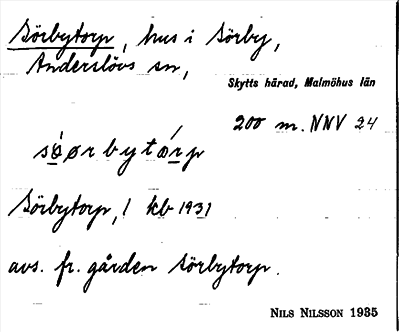 Sörbytorp, hus i Sörby,
Anderslövs sn,
Skytts härad, Malmöhus län
200 m. NNV 24
søørbytørp
Sörbytorp, 1 kb 1931
avs. fr. gården Sörbytorp.
NILS NILSSON 1935